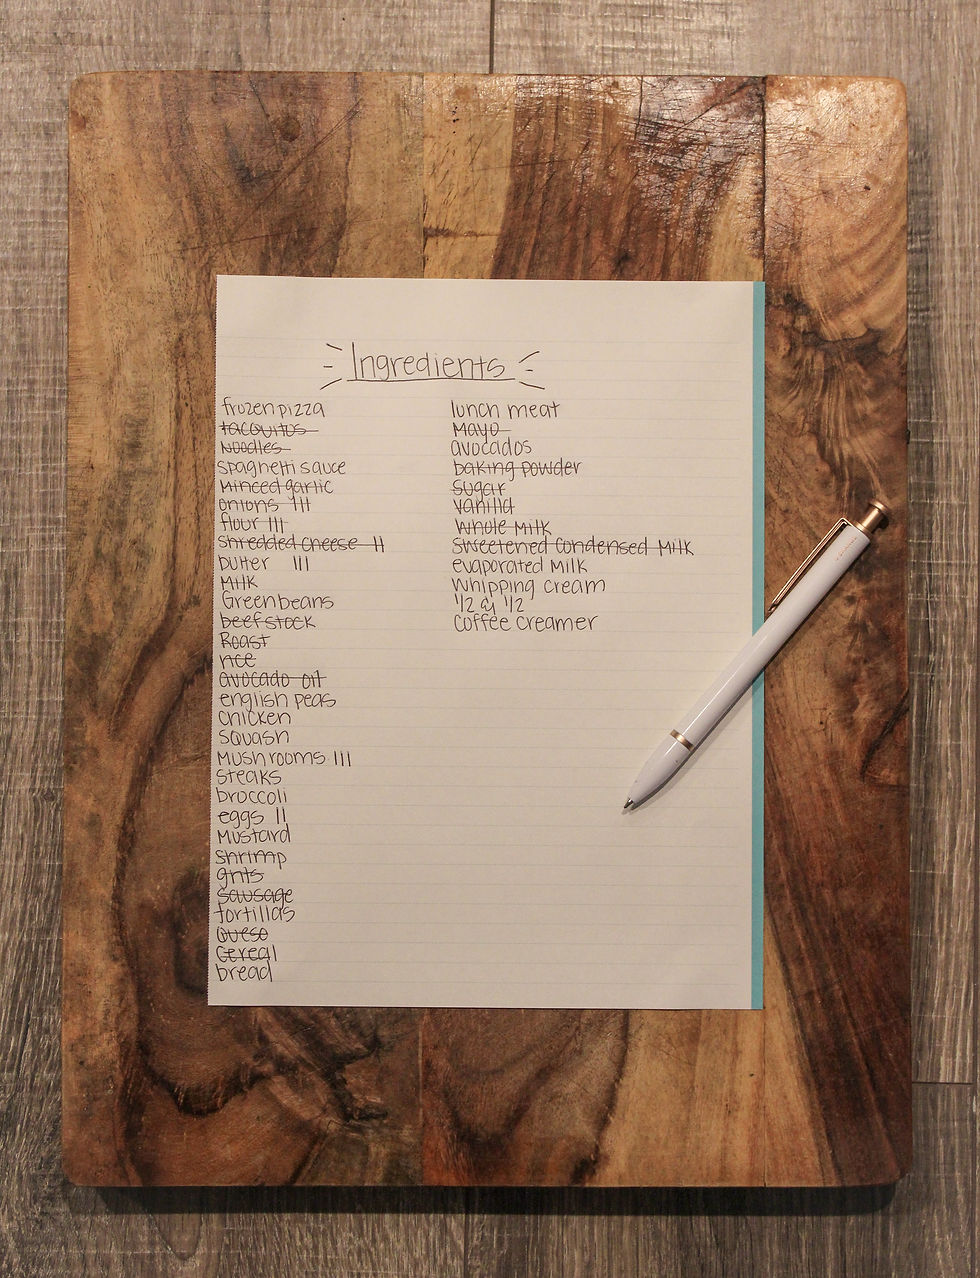 Ingredients
frozen pizza
tacquitos
Noodles
spaghetti sauce
Minced garlic
onions III
flour III
shredded cheese II
butter III
Milk
Green beans
beef stock
Roast
rice
avocado oil
english peas
chicken
squash
Mushrooms III
steaks
broccoli
eggs II
Mustard
shrimp
grits
sausage
tortillas
Queso
Cereal
bread
lunch meat
Mayo
avocados
baking powder
Sugar
Vanilla
Whole Milk
Sweetened Condensed Milk
evaporated Milk
Whipping cream
1/2 & 1/2
Coffee Creamer